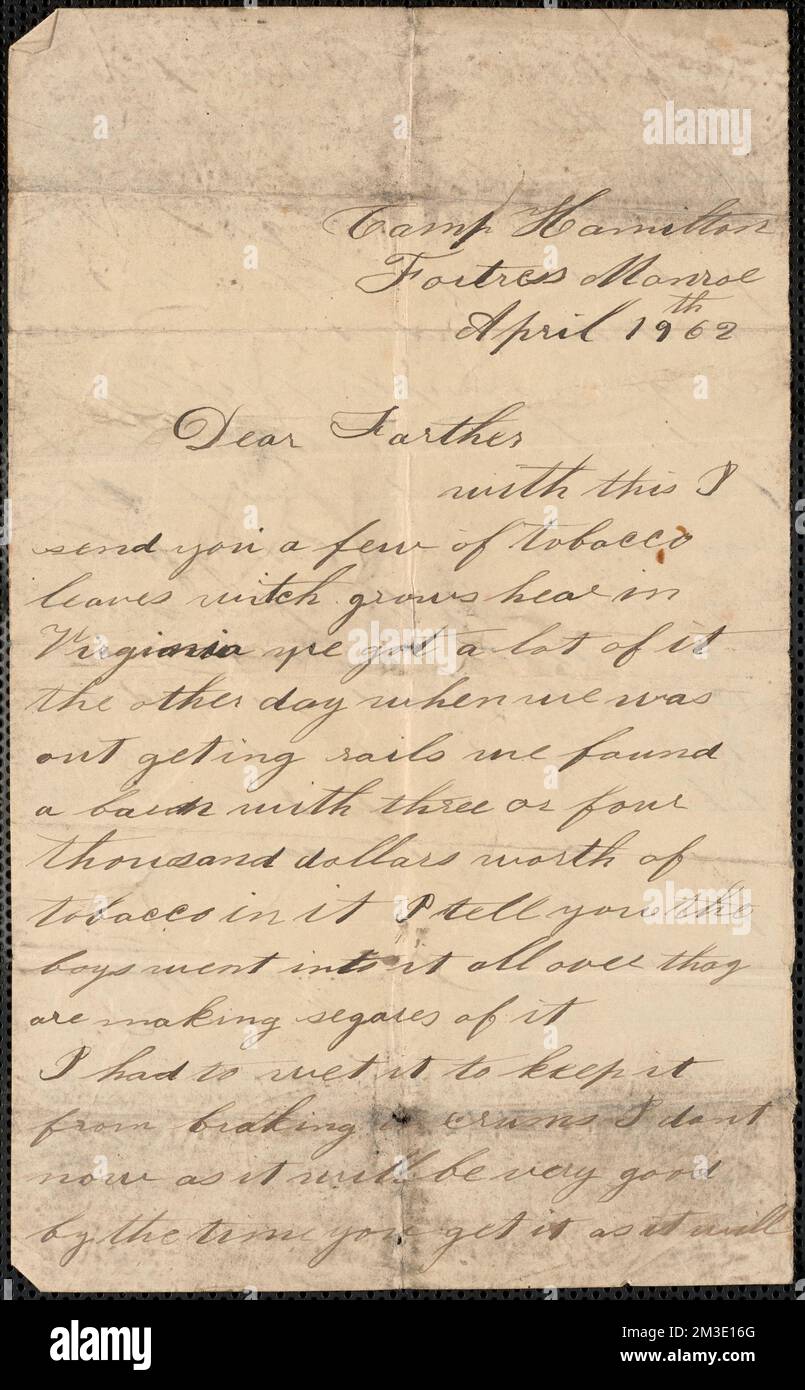 Camp Hamilton
Fortress Monroe
April 19th 62
Dear Farther
with this I
send you a few of tobacco
leaves witch grows hear in
Virginia we got a lot of it
the other day when we was
out geting rails we found
a barn with three or four
thousand dollars worth of
tobacco in it I tell you the
boys went into it all over thay
are making segares of it
I had to wet it to keep it
from braking crums I dont
now as it will be very good
by the time you get it as it will
alamy
a
alamy
Image ID: 2M3E16G
www.alamy.com